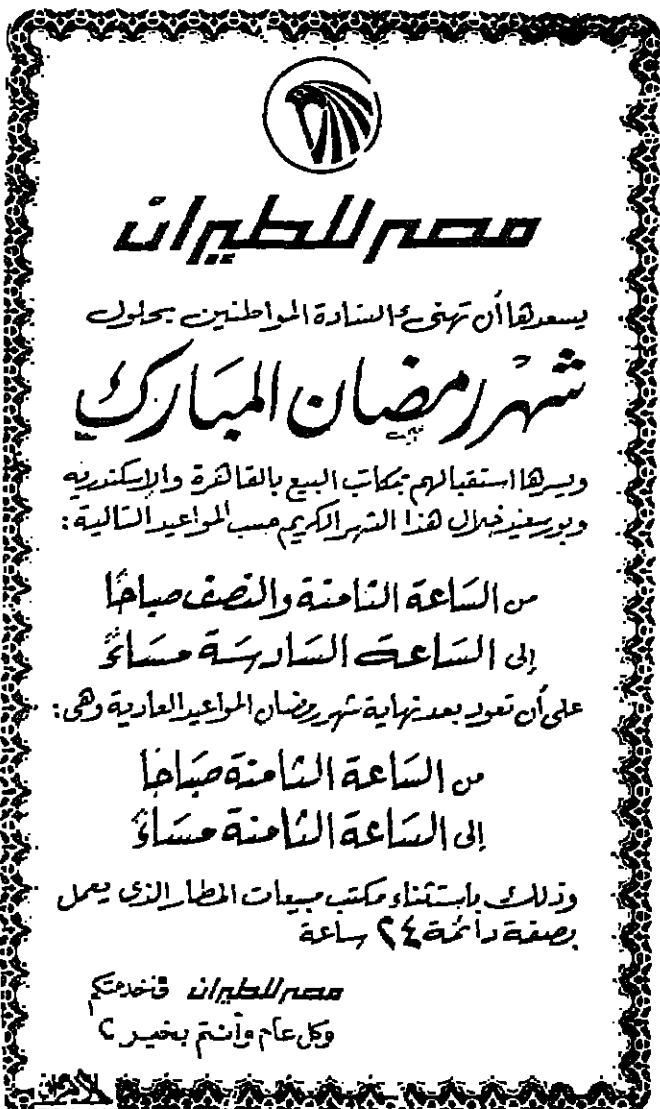 مصر للطيران
يسعدها أن تهنىء السادة المواطنين بحلول
شهر رمضان المبارك
ويسرها استقبالهم بمكاتب البيع بالقاهرة والإسكندرية
وبورسعيد خلال هذا الشهر الكريم حسب المواعيد التالية :
من الساعة الثامنة والنصف صباحًا
إلى الساعة السادسة مساءً
على أن تعود بعد نهاية شهر رمضان المواعيد العادية وهى :
من الساعة الثامنة صباحًا
إلى الساعة الثامنة مساءً
وذلك باستثناء مكتب مبيعات المطار الذى يعمل
بصفة دائمة ٢٤ ساعة
مصر للطيران فى خدمتكم
وكل عام وأنتم بخير